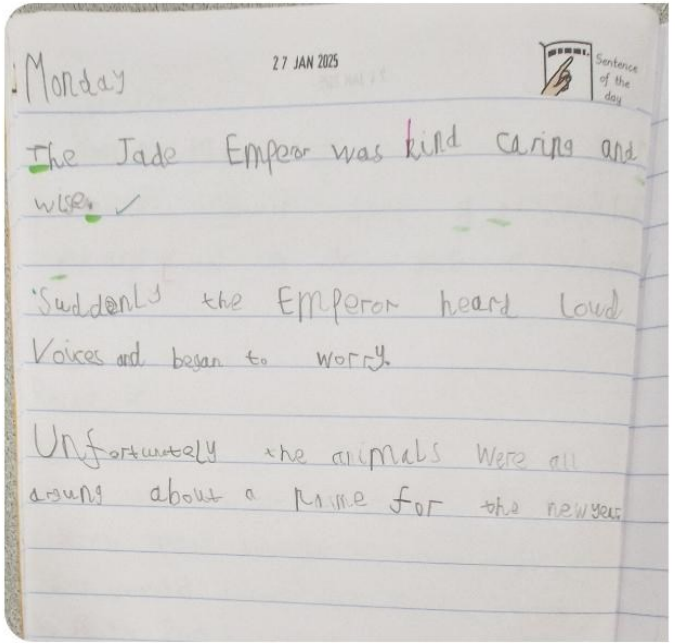 Monday
27 JAN 2025
Sentence
of the
day
The Jade Emperor was kind caring and
wise.
Suddenly the Emperor heard loud
Voices and began to worry.
Unfortunately the animals were all
arguing about a name for the new year.